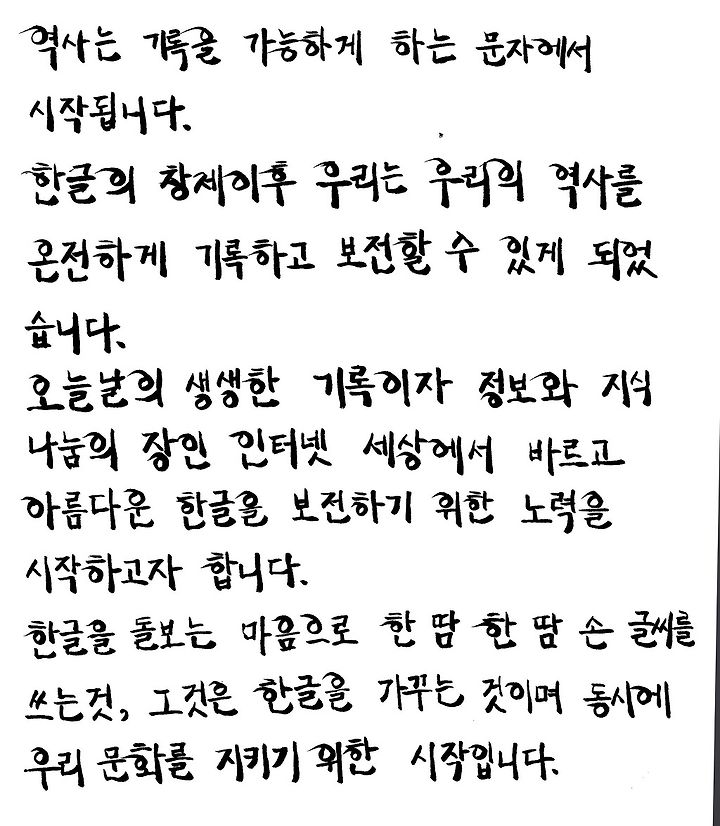 역사는 기록을 가능하게 하는 문자에서
시작됩니다.
한글의 창제이후 우리는 우리의 역사를
온전하게 기록하고 보전할 수 있게 되었
습니다.
오늘날의 생생한 기록이자 정보와 지식
나눔의 장인 인터넷 세상에서 바르고
아름다운 한글을 보전하기 위한 노력을
시작하고자 합니다.
한글을 돌보는 마음으로 한 땀 한 땀 손 글씨를
쓰는것, 그것은 한글을 가꾸는 것이며 동시에
우리 문화를 지키기 위한 시작입니다.